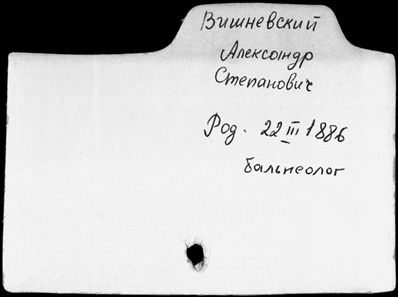 Вишневский
Александр
Степанович
Род. 22 III 1886
бальнеолог